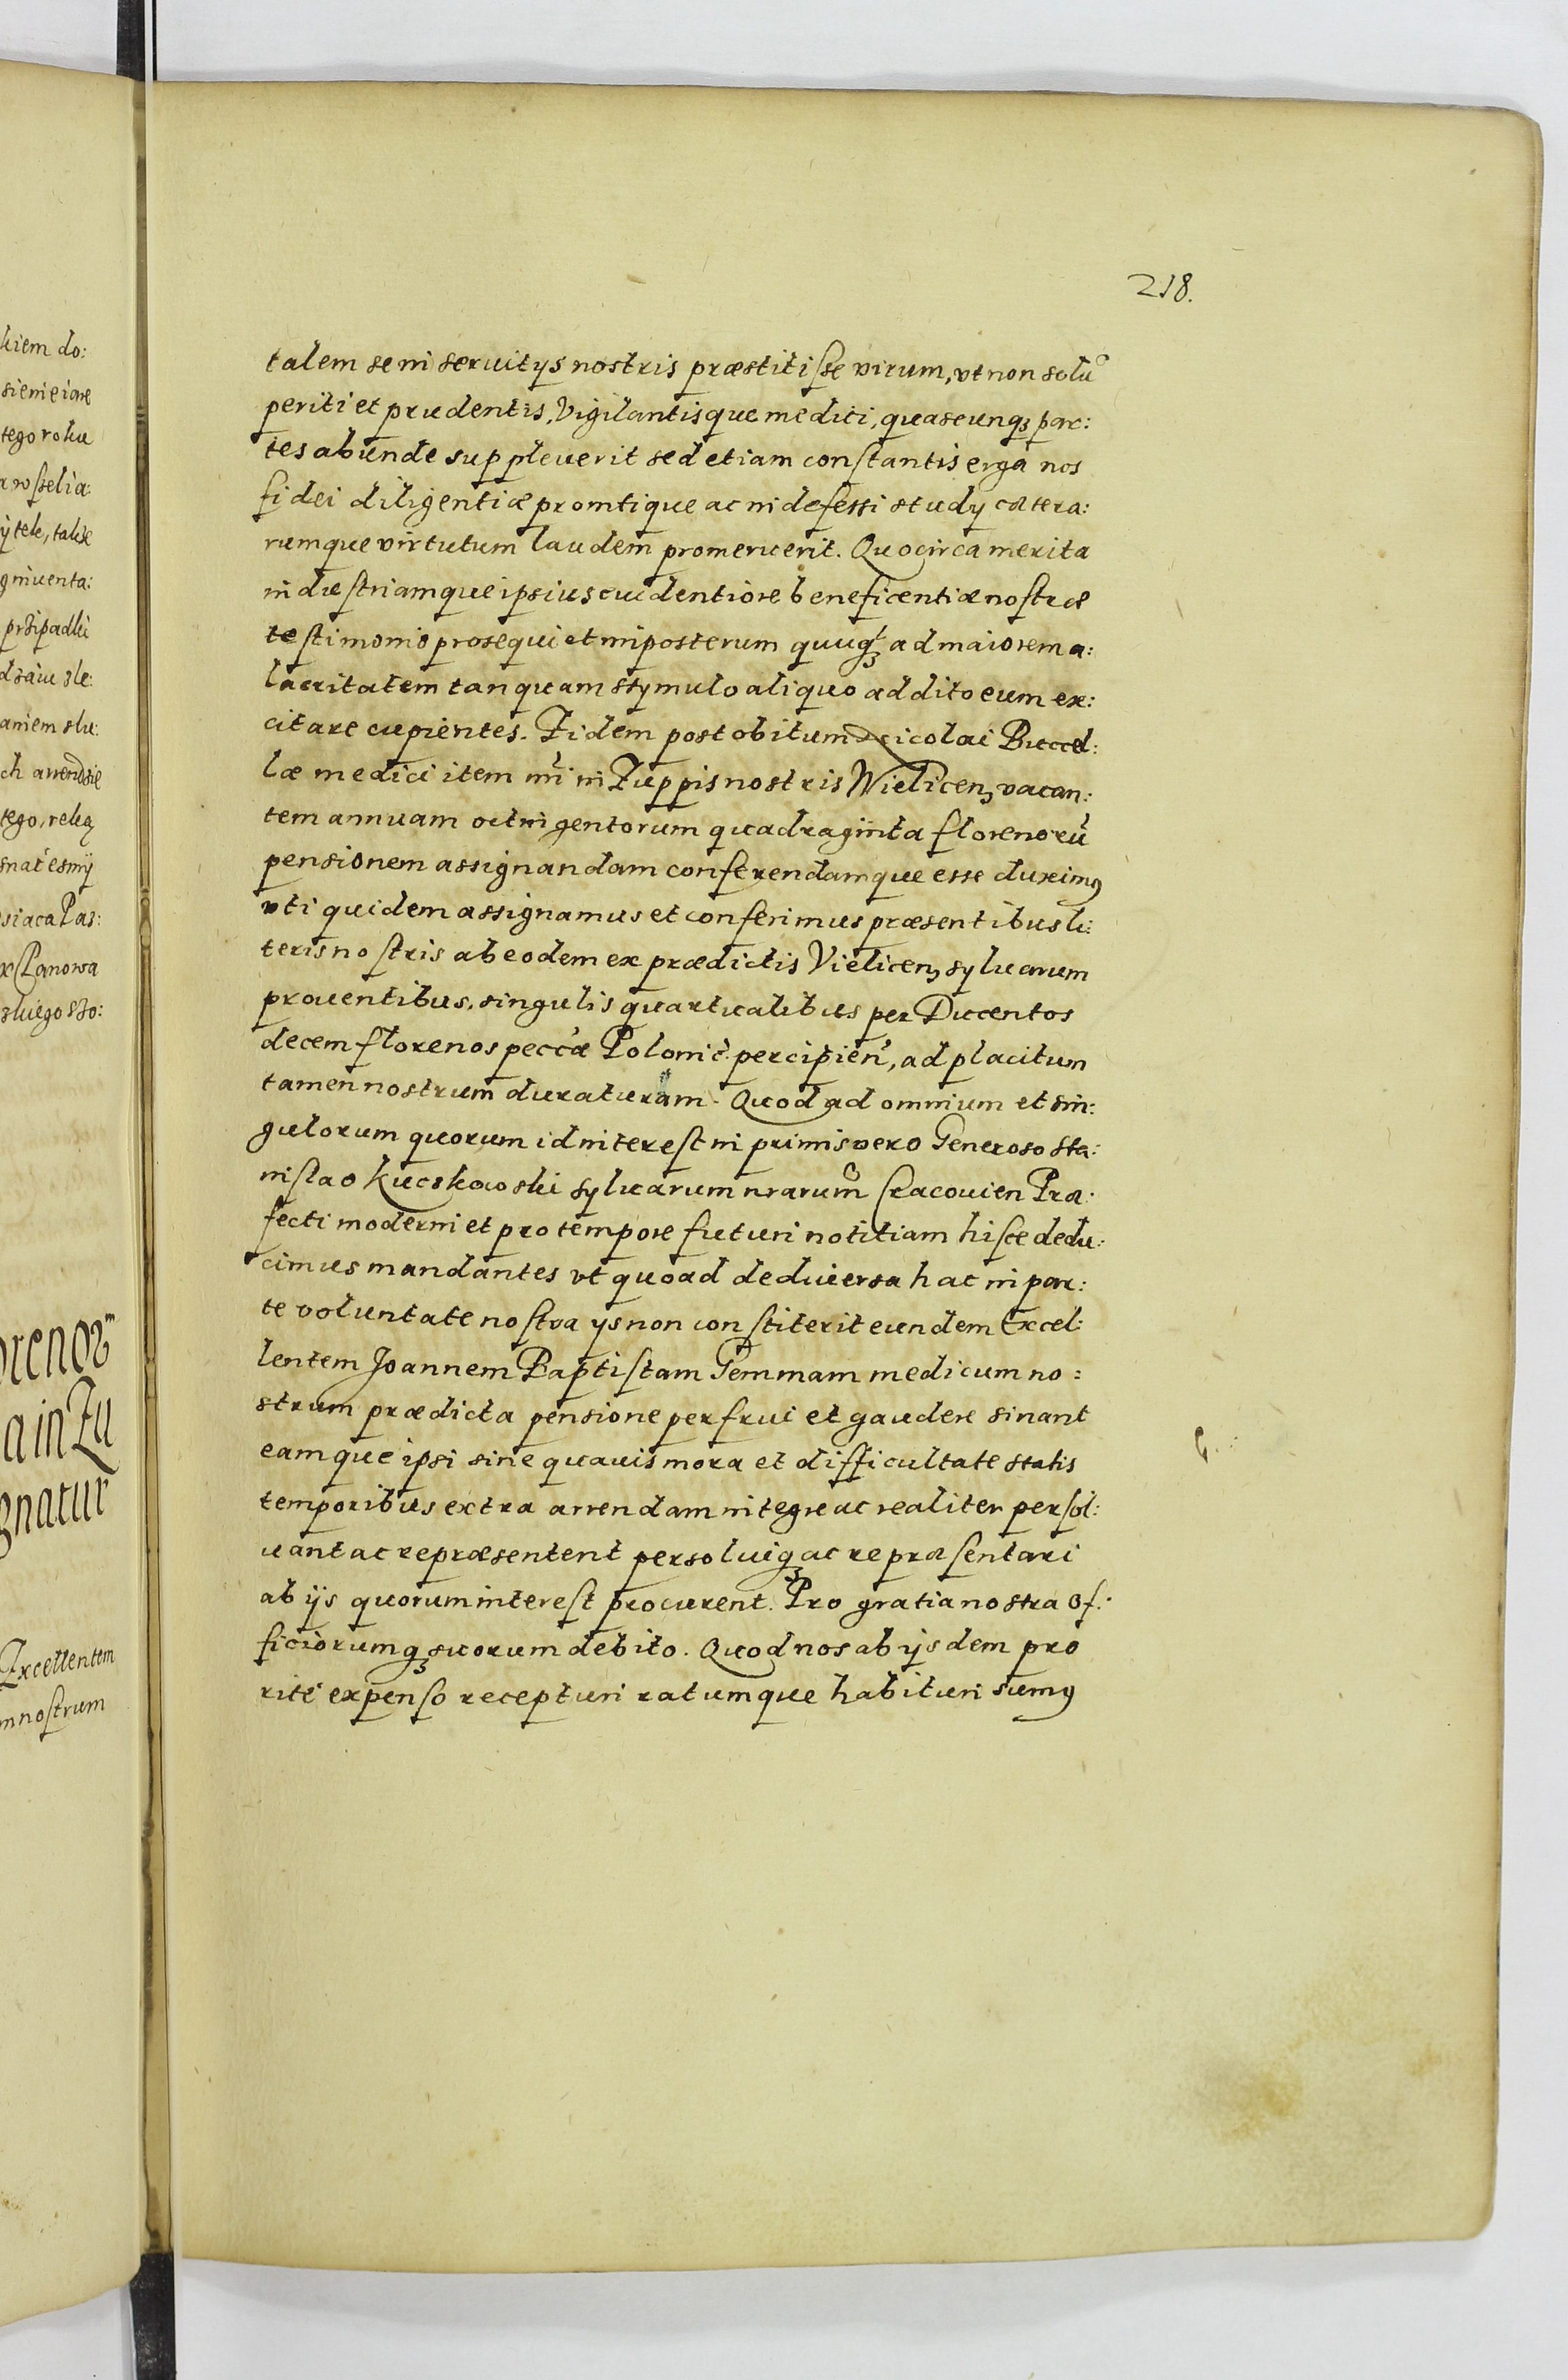 218.
talem se in seruitijs nostris præstitisse virum, vt non solũ
periti et prudentis, Vigilantisque medici, quascunqȝ par:
tes abunde suppleuerit sed etiam constantis erga nos
fidei diligentiæ promtique ac indefessi study cætera:
rumque virtutum laudem promeruerit. Quocirca merita
industriamque ipsius euidentiore beneficentiæ nostræ
testimonio prosequi et in posterum quuqȝ ad maiorem a:
lacritatem tanquam stymulo aliquo addito eum ex:
citare cupientes. Eidem post obitum Nicolai Buccel:
læ medici item nri in Zuppis nostris Wielicenȝ vacan:
tem annuam octingentorum quadraginta florenorũ
pensionem assignandam conferendamque esse duximꝰ
vti quidem assignamus et conferimus præsentibus li:
teris nostris ab eodem ex prædictis Vielicenȝ syluarum
prouentibus, singulis quartualibus per Ducentos
decem florenos peccæ Polonic percipien, ad placitum
tamen nostrum duraturam. Quod ad omnium et sin:
gulorum quorum id interest in primis vero Generoso Sta:
nislao Kuczkowski syluarum nrarum Cracouien Præ:
fecti moderni et pro tempore futuri notitiam hisce dedu:
cimus mandantes vt quoad de diuersa hac in par:
te voluntate nostra ijs non constiterit eundem Excel:
lentem Joannem Baptistam Gemmam medicum no:
strum prædicta pensione perfrui et gaudere sinant
eamque ipsi sine quauis mora et difficultate statis
temporibus extra arrendam integre ac realiter persol:
uant ac repræsentent persoluiqȝ ac repræsentari
ab ijs quorum interest procurent. Pro gratia nostra Of:
ficiorumqȝ suorum debito. Quod nos ab ijsdem pro
rite expenso recepturi ratumque habituri sumꝰ